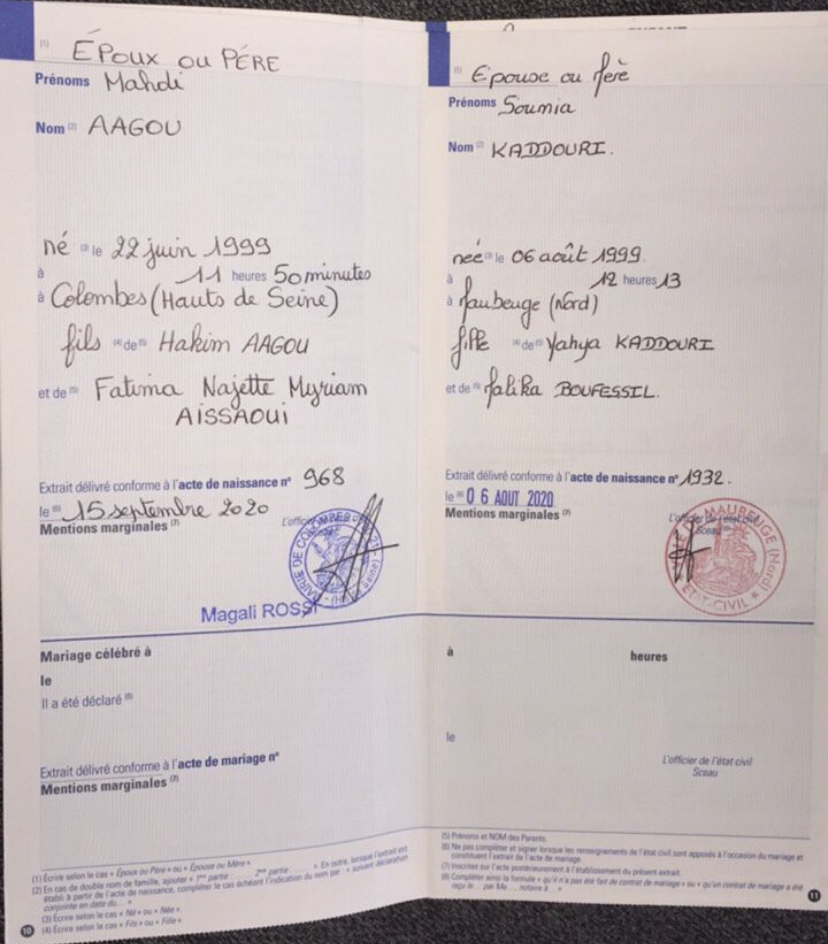 (1) ÉPOUX OU PÈRE
Prénoms Mahdi
Nom (2) AAGOU
né (3) le 22 juin 1999
à 11 heures 50 minutes
à Colombes (Hauts de Seine)
fils (4) de (5) Hakim AAGOU
et de (5) Fatima Najette Myriam
AISSAOUI
Extrait délivré conforme à l'acte de naissance n° 968
le (6) 15 septembre 2020
Mentions marginales (7)
L'officier
MAIRIE DE COLOMBES
Magali ROSSI
Mariage célébré à
le
Il a été déclaré (8)
Extrait délivré conforme à l'acte de mariage n°
Mentions marginales (7)
(1) Écrire selon le cas « Époux ou Père » ou « Épouse ou Mère ».
(2) En cas de double nom de famille, ajouter « 1ère partie ........ 2ème partie ........ ». En outre, lorsque l'extrait est
établi à partir de l'acte de naissance, compléter le cas échéant l'indication du nom par « suivant déclaration
conjointe en date du... »
(3) Écrire selon le cas « Né » ou « Née »
(4) Écrire selon le cas « Fils » ou « Fille »
10
(1) Epouse ou Mère
Prénoms Soumia
Nom (2) KADDOURI.
née (3) le 06 août 1999.
à 12 heures 13
à Maubeuge (Nord)
fille (4) de (5) Yahya KADDOURI
et de (5) Malika BOUFESSIL.
Extrait délivré conforme à l'acte de naissance n° 1932.
le (6) 06 AOUT 2020
Mentions marginales (7)
L'officier de l'état civil
Sceau
VILLE DE MAUBEUGE (Nord)
ETAT-CIVIL
à heures
le
L'officier de l'état civil
Sceau
(5) Prénoms et NOM des Parents.
(6) Ne pas compléter et signer lorsque les renseignements de l'état civil sont apposés à l'occasion du mariage et
constituent l'extrait de l'acte de mariage
(7) Inscrites sur l'acte postérieurement à l'établissement du présent extrait.
(8) Compléter ainsi la formule « qu'il n'a pas été fait de contrat de mariage » ou « qu'un contrat de mariage a été
reçu le ... par Me ... notaire à ... »
11